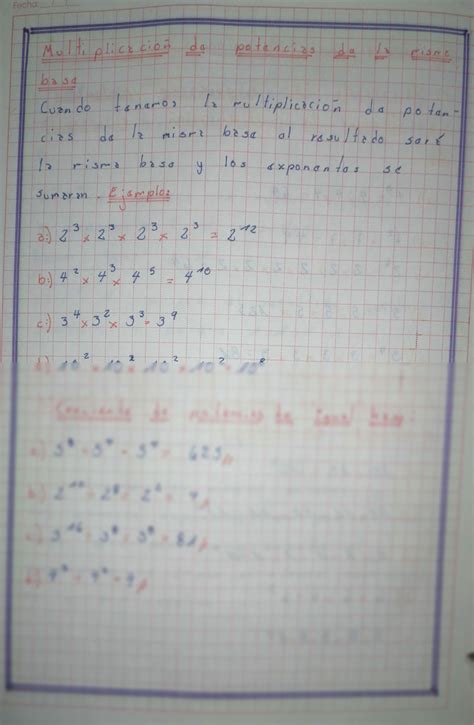 Fecha
Multiplicación da potencias da la misma
basa
Cuando tenamos la multiplicación da poten-
cias da la misma basa al resultado sará
la misma basa y los exponentas se
sumaran. Ejemplos
a:) 2³ × 2³ × 2³ × 2³ = 2¹²
b:) 4² × 4³ × 4⁵ = 4¹⁰
c:) 3⁴ × 3² × 3³ = 3⁹
d:) 10² × 10² × 10² × 10² = 10⁸
de potencias de igual base
a) = 625
b) 2¹⁰ ÷ 2⁸ = 2² = 4
c) = 81
d)